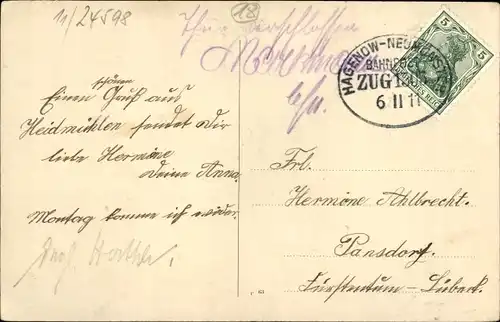 11/24598
18
Thür verschlossen
HAGENOW-NEUMÜNSTER
BAHNPOST
ZUG
6 II 11
5
5
schönen
Einen Gruß aus
Heidmühlen sendet Dir
liebe Hermine
Deine Anna.
Montag komme ich wieder.
Frl.
Hermine Ahlbrecht.
Pansdorf.
Fürstentum-Lübeck.